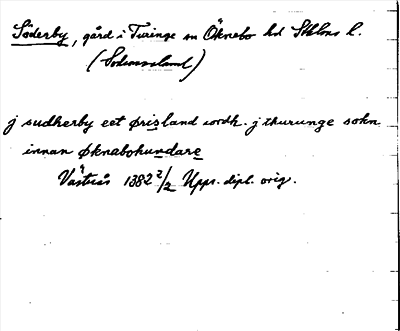 Söderby, gård i Turinge sn Öknebo hd Sthlms l.
(Södermanland)
j sudherby eet ørisland iordh. j thurunge sokn
innan øknabohundare
Västerås 1382 2/2 Upps. dipl. orig.